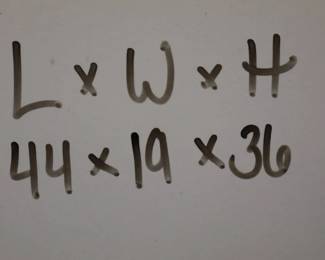 L x W x H
44 x 19 x 36